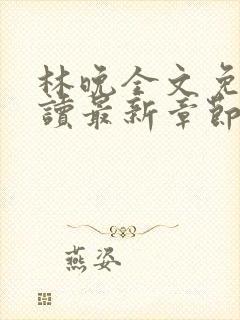 林晚全文免
讀最新章節
燕姿